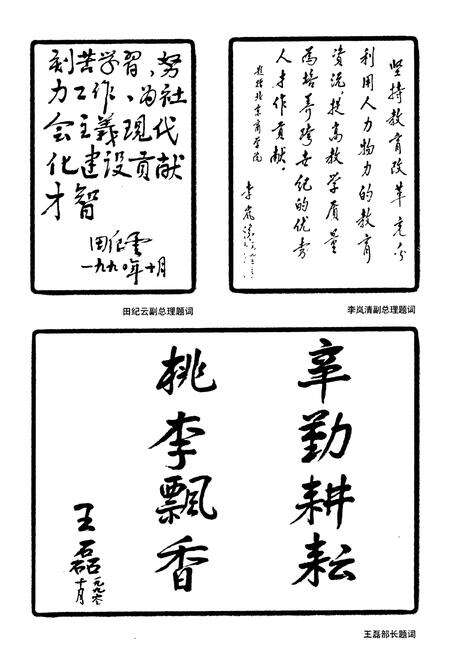 刻苦学習,努
力工作、为社
会主義现代
化建设贡献
才智
田纪云
一九九〇年十月
田纪云副总理题词
坚持教育改革充分
利用人力物力的教育
资源,提高教学质量
为培养跨世纪的优秀
人才作贡献。
题赠北京商学院
李岚清
李岚清副总理题词
辛勤耕耘
桃李飘香
王磊
一九九〇
十月
王磊部长题词